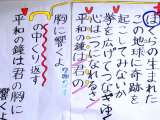 ぼくらの生まれた
この地球に奇跡を
起こしてみないか
拳を広げてつなぎゆけば
心はつになれるさ
平和の鐘は君の
胸に響くよ
の中くり返す
平和の鐘は君の胸に
響くよ